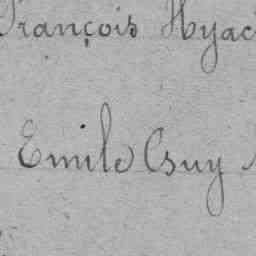 François Hyac
Emile Cuny